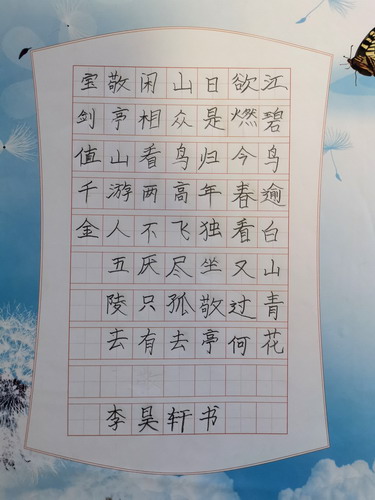 江碧鸟逾白山青花
欲燃今春看又过何
日是归年独坐敬亭
山众鸟高飞尽孤去
闲相看两不厌只有
敬亭山游人五陵去
宝剑值千金
李昊轩书